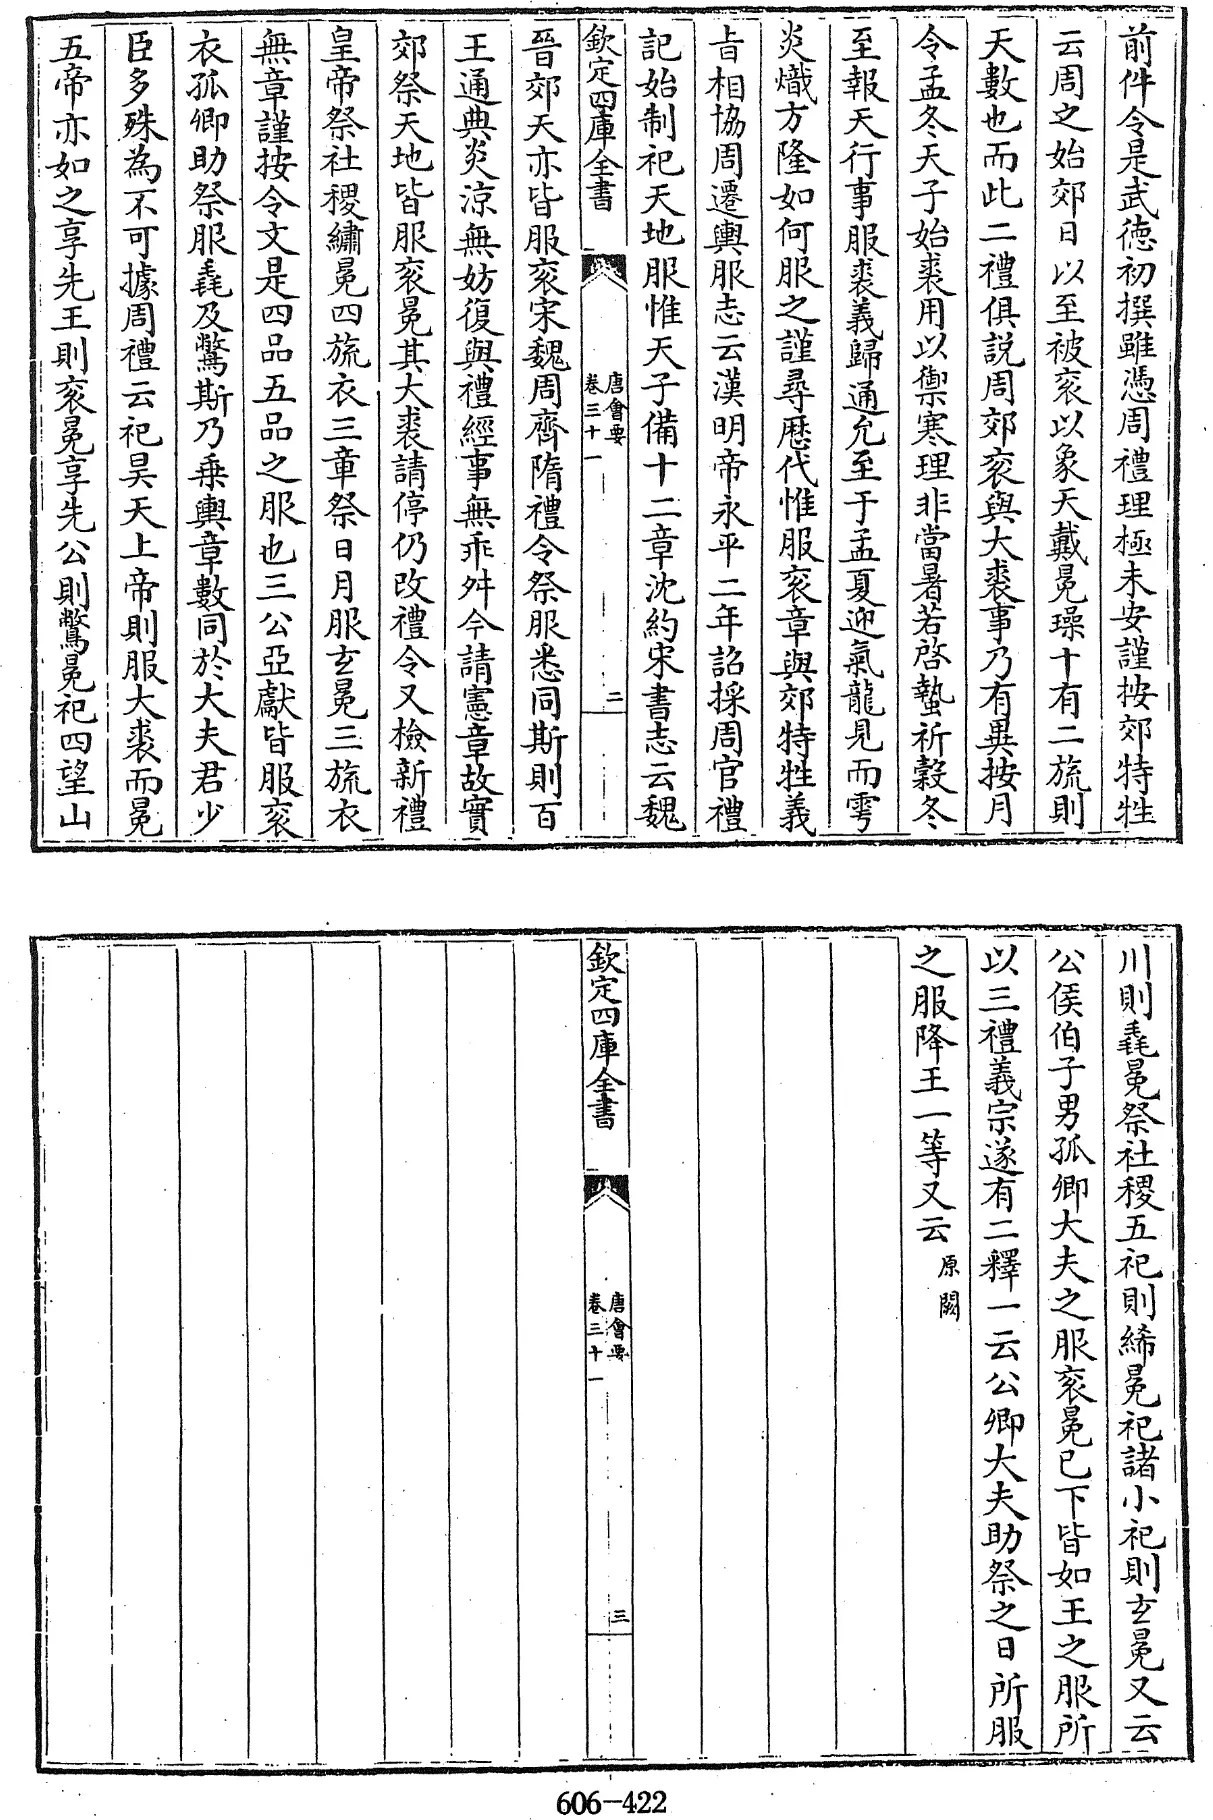 前件令是武徳初撰雖憑周禮理極未安謹按郊特牲
云周之始郊日以至被衮以象天戴冕璪十有二旒則
天數也而此二禮俱説周郊衮與大裘事乃有異按月
令孟冬天子始裘用以禦寒理非當暑若啓蟄祈穀冬
至報天行事服裘義歸通允至于孟夏迎氣龍見而雩
炎熾方隆如何服之謹尋歴代惟服衮章與郊特牲義
㫖相協周遷輿服志云漢明帝永平二年詔採周官禮
記始制祀天地服惟天子備十二章沈約宋書志云魏
欽定四庫全書
唐會要
卷三十一
二
晉郊天亦皆服衮宋魏周齊隋禮令祭服悉同斯則百
王通典炎涼無妨復與禮經事無乖舛今請憲章故實
郊祭天地皆服衮冕其大裘請停仍改禮令又檢新禮
皇帝祭社稷繡冕四旒衣三章祭日月服𤣥冕三旒衣
無章謹按令文是四品五品之服也三公亞獻皆服衮
衣孤卿助祭服毳及鷩斯乃乗輿章數同於大夫君少
臣多殊為不可據周禮云祀昊天上帝則服大裘而冕
五帝亦如之享先王則衮冕享先公則鷩冕祀四望山
川則毳冕祭社稷五祀則絺冕祀諸小祀則𤣥冕又云
公侯伯子男孤卿大夫之服衮冕已下皆如王之服所
以三禮義宗遂有二釋一云公卿大夫助祭之日所服
之服降王一等又云原闕
欽定四庫全書
唐會要
卷三十一
三
606-422